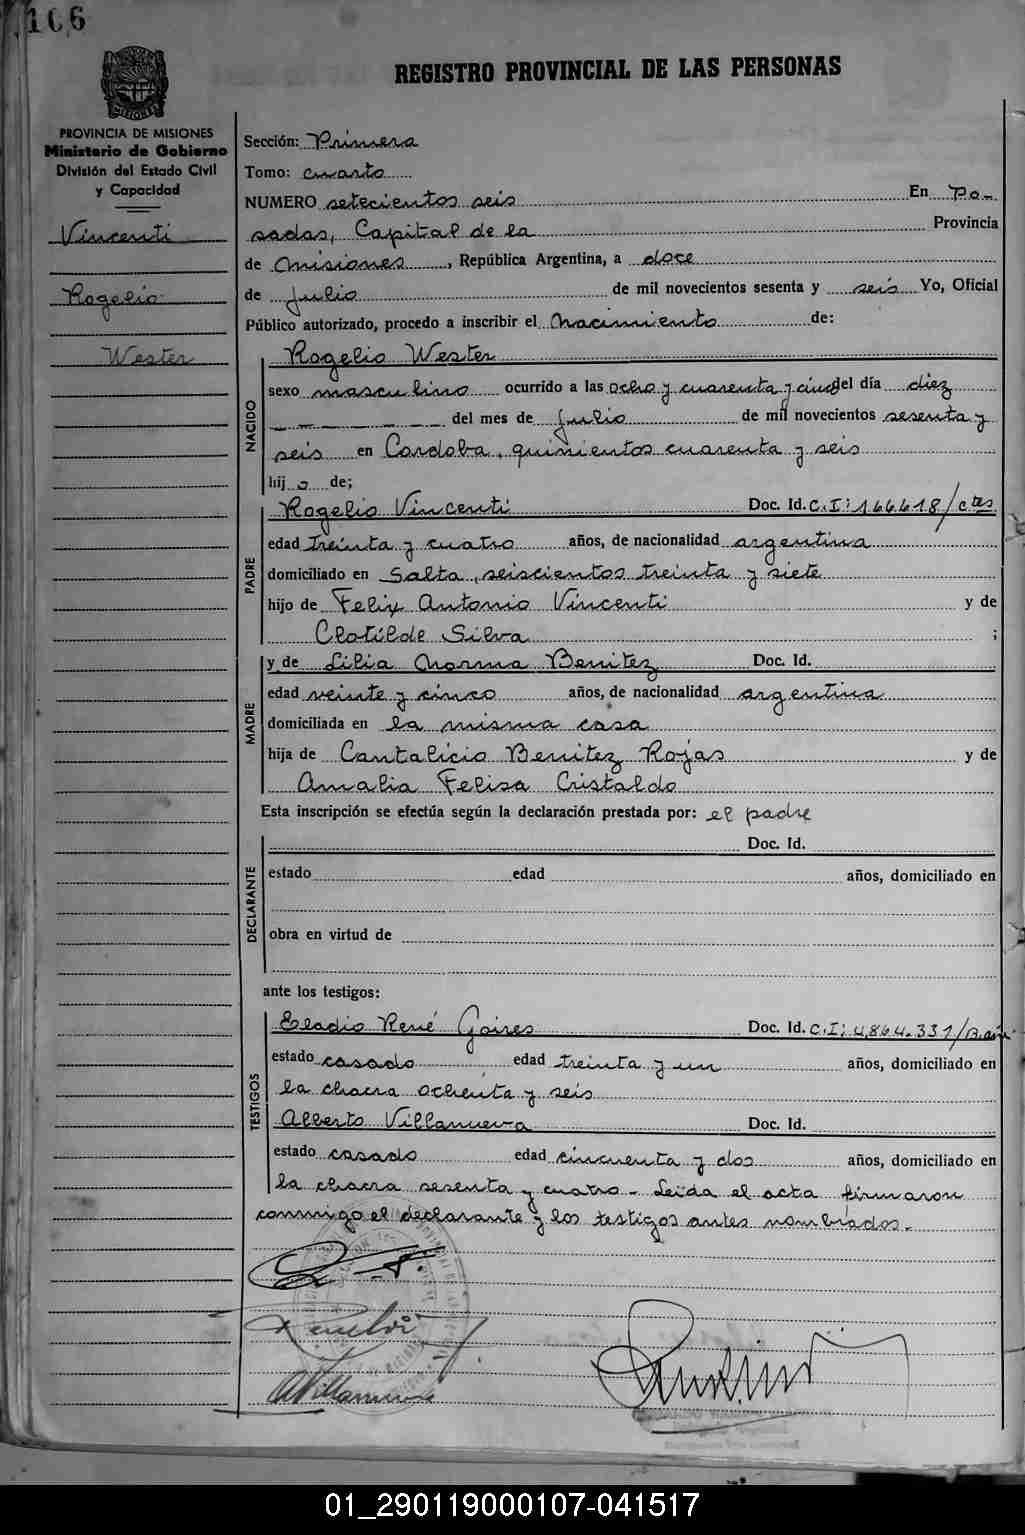 106
REGISTRO PROVINCIAL DE LAS PERSONAS
MISIONES
PROVINCIA DE MISIONES
Ministerio de Gobierno
División del Estado Civil
y Capacidad
Vincenti
Rogelio
Wester
Sección: Primera
Tomo: cuarto
NUMERO setecientos seis En Po-
sadas, Capital de la Provincia
de Misiones, República Argentina, a doce
de Julio de mil novecientos sesenta y seis Yo, Oficial
Público autorizado, procedo a inscribir el Nacimiento de:
NACIDO
Rogelio Wester
sexo masculino ocurrido a las ocho y cuarenta y cinco del día diez
del mes de Julio de mil novecientos sesenta y
seis en Cordoba, quinientos cuarenta y seis
hij o de;
PADRE
Rogelio Vincenti Doc. Id. C.I: 166618/ctes
edad treinta y cuatro años, de nacionalidad argentina
domiciliado en Salta, seiscientos treinta y siete
hijo de Felix Antonio Vincenti y de
Clotilde Silva ;
MADRE
y de Lilia Norma Benitez Doc. Id.
edad veinte y cinco años, de nacionalidad argentina
domiciliada en la misma casa
hija de Cantalicio Benitez Rojas y de
Amalia Felisa Cristaldo
Esta inscripción se efectúa según la declaración prestada por: el padre
DECLARANTE
Doc. Id.
estado edad años, domiciliado en
obra en virtud de
ante los testigos:
TESTIGOS
Eladio René Goires Doc. Id. C.I: 4.864.331/
estado casado edad treinta y un años, domiciliado en
la chacra ochenta y seis
Alberto Villanueva Doc. Id.
estado casado edad cincuenta y dos años, domiciliado en
la chacra sesenta y cuatro - Leida el acta firmaron
conmigo el declarante y los testigos antes nombrados.-
AVillanueva
01_290119000107-041517